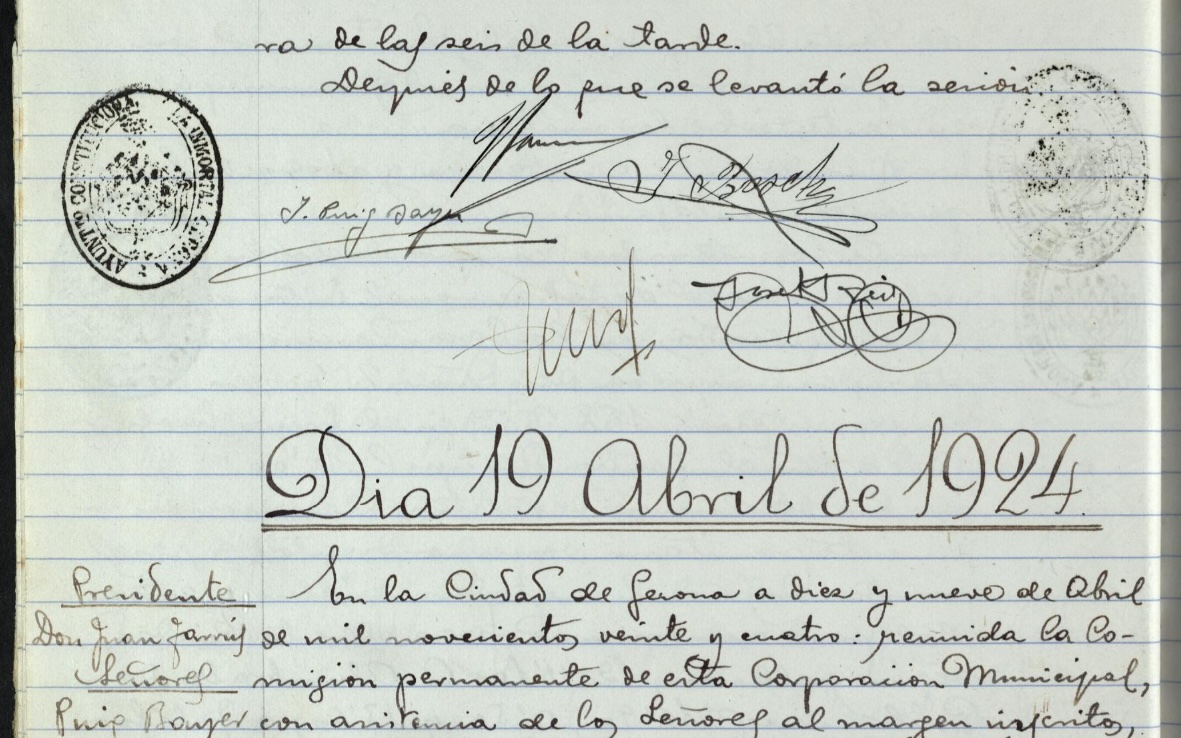 ra de las seis de la tarde.
Después de lo que se levantó la sesión.
AYUNTto CONSTITUCIONAL LA INMORTAL GERONA
J. Bosch
J. Puig Dayer
Dia 19 Abril de 1924.
Presidente
Don Juan
Señores
Puig Bayer
En la Ciudad de Gerona a diez y nueve de Abril
de mil novecientos veinte y cuatro: reunida la Co-
misión permanente de esta Corporacion Municipal,
con asistencia de los Señores al margen inscritos,